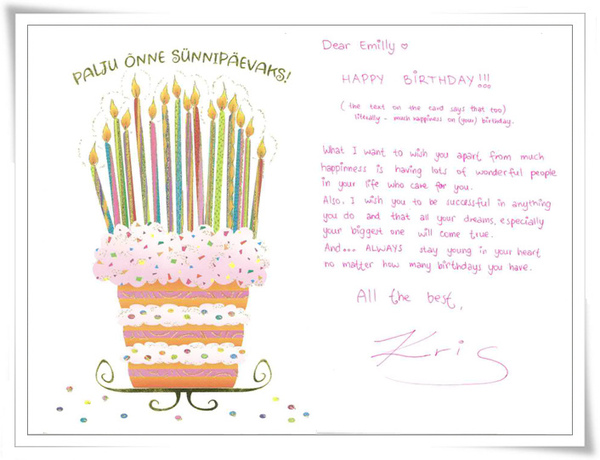 PALJU ÕNNE SÜNNIPÄEVAKS!
Dear Emilly ♡
HAPPY BIRTHDAY!!!
( the text on the card says that too)
literally - much happiness on (your) birthday.
What I want to wish you apart from much
happinness is having lots of wonderful people
in your life who care for you.
Also, I wish you to be successful in anything
you do and that all your dreams, especially
your biggest one will come true.
And... ALWAYS stay young in your heart
no matter how many birthdays you have.
All the best,
Kris